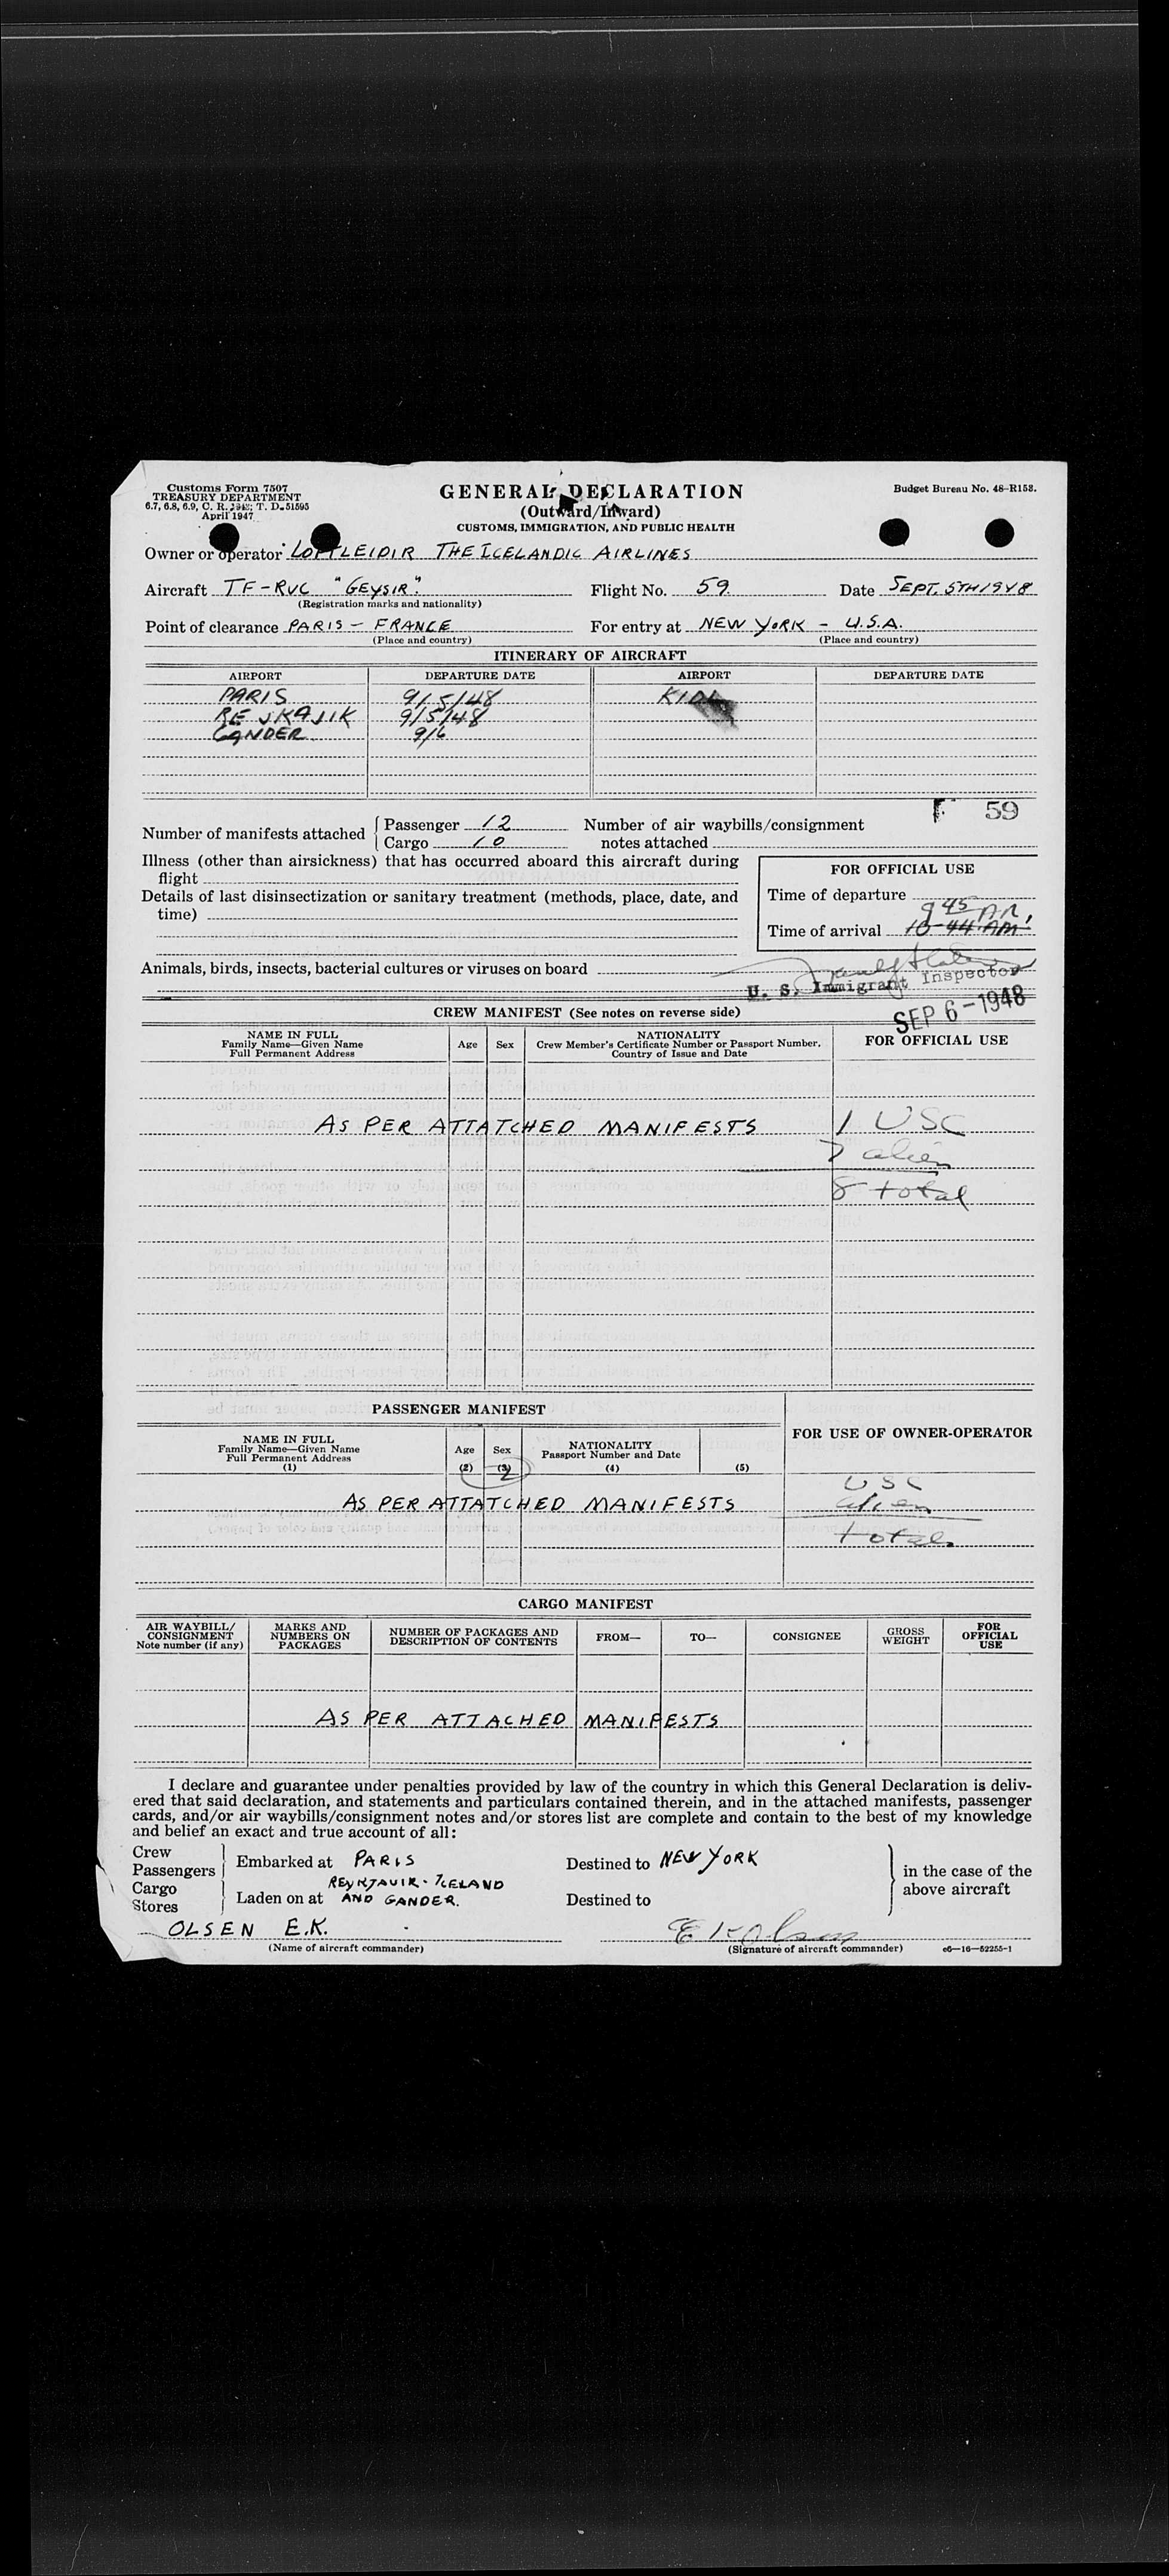 Customs Form 7507
TREASURY DEPARTMENT
6.7, 6.8, 6.9, C. R. 1943; T. D. 51595
April 1947
GENERAL DECLARATION
(Outward/Inward)
CUSTOMS, IMMIGRATION, AND PUBLIC HEALTH
Budget Bureau No. 48-R158.
Owner or operator LOFTLEIDIR THE ICELANDIC AIRLINES
Aircraft TF-RVC "GEYSIR" Flight No. 59 Date SEPT. 5TH 1948
(Registration marks and nationality)
Point of clearance PARIS - FRANCE For entry at NEW YORK - U.S.A.
(Place and country) (Place and country)
ITINERARY OF AIRCRAFT
AIRPORT DEPARTURE DATE AIRPORT DEPARTURE DATE
PARIS 9/5/48
REJKAJIK 9/5/48
GANDER 9/6
59
Number of manifests attached Passenger 12
Cargo 10
Number of air waybills/consignment
notes attached
Illness (other than airsickness) that has occurred aboard this aircraft during
flight
Details of last disinsectization or sanitary treatment (methods, place, date, and
time)
FOR OFFICIAL USE
Time of departure
9 45 AM
Time of arrival 10-44 AM
Animals, birds, insects, bacterial cultures or viruses on board
U. S. Immigrant Inspector
SEP 6-1948
CREW MANIFEST (See notes on reverse side)
NAME IN FULL
Family Name—Given Name
Full Permanent Address
Age Sex
NATIONALITY
Crew Member's Certificate Number or Passport Number,
Country of Issue and Date
FOR OFFICIAL USE
AS PER ATTATCHED MANIFESTS 1 USC
7 alien
8 total
PASSENGER MANIFEST
FOR USE OF OWNER-OPERATOR
NAME IN FULL
Family Name—Given Name
Full Permanent Address
(1)
Age
(2)
Sex
(3)
NATIONALITY
Passport Number and Date
(4)
(5)
USC
AS PER ATTATCHED MANIFESTS alien
total
CARGO MANIFEST
AIR WAYBILL/
CONSIGNMENT
Note number (if any)
MARKS AND
NUMBERS ON
PACKAGES
NUMBER OF PACKAGES AND
DESCRIPTION OF CONTENTS
FROM—
TO—
CONSIGNEE
GROSS
WEIGHT
FOR
OFFICIAL
USE
AS PER ATTACHED MANIFESTS
I declare and guarantee under penalties provided by law of the country in which this General Declaration is deliv-
ered that said declaration, and statements and particulars contained therein, and in the attached manifests, passenger
cards, and/or air waybills/consignment notes and/or stores list are complete and contain to the best of my knowledge
and belief an exact and true account of all:
Crew
Passengers
Cargo
Stores
Embarked at PARIS
REYKJAVIK - ICELAND
Laden on at AND GANDER.
Destined to NEW YORK
Destined to
in the case of the
above aircraft
OLSEN E.K. E K Olsen
(Name of aircraft commander) (Signature of aircraft commander) c6—16—52255-1